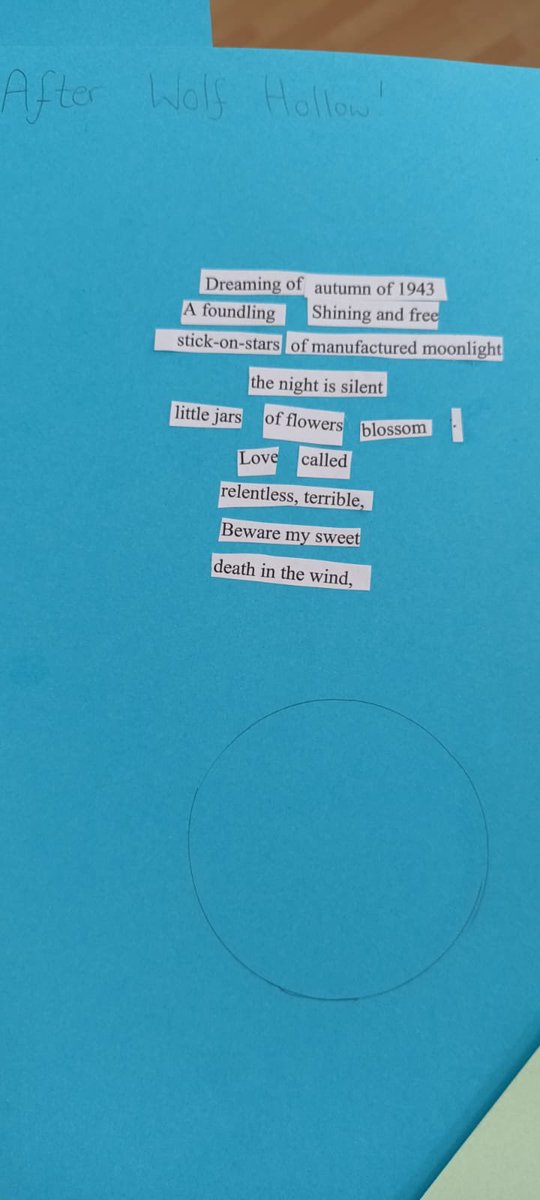 After Wolf Hollow'
Dreaming of autumn of 1943
A foundling Shining and free
stick-on-stars of manufactured moonlight
the night is silent
little jars of flowers blossom .
Love called
relentless, terrible,
Beware my sweet
death in the wind,